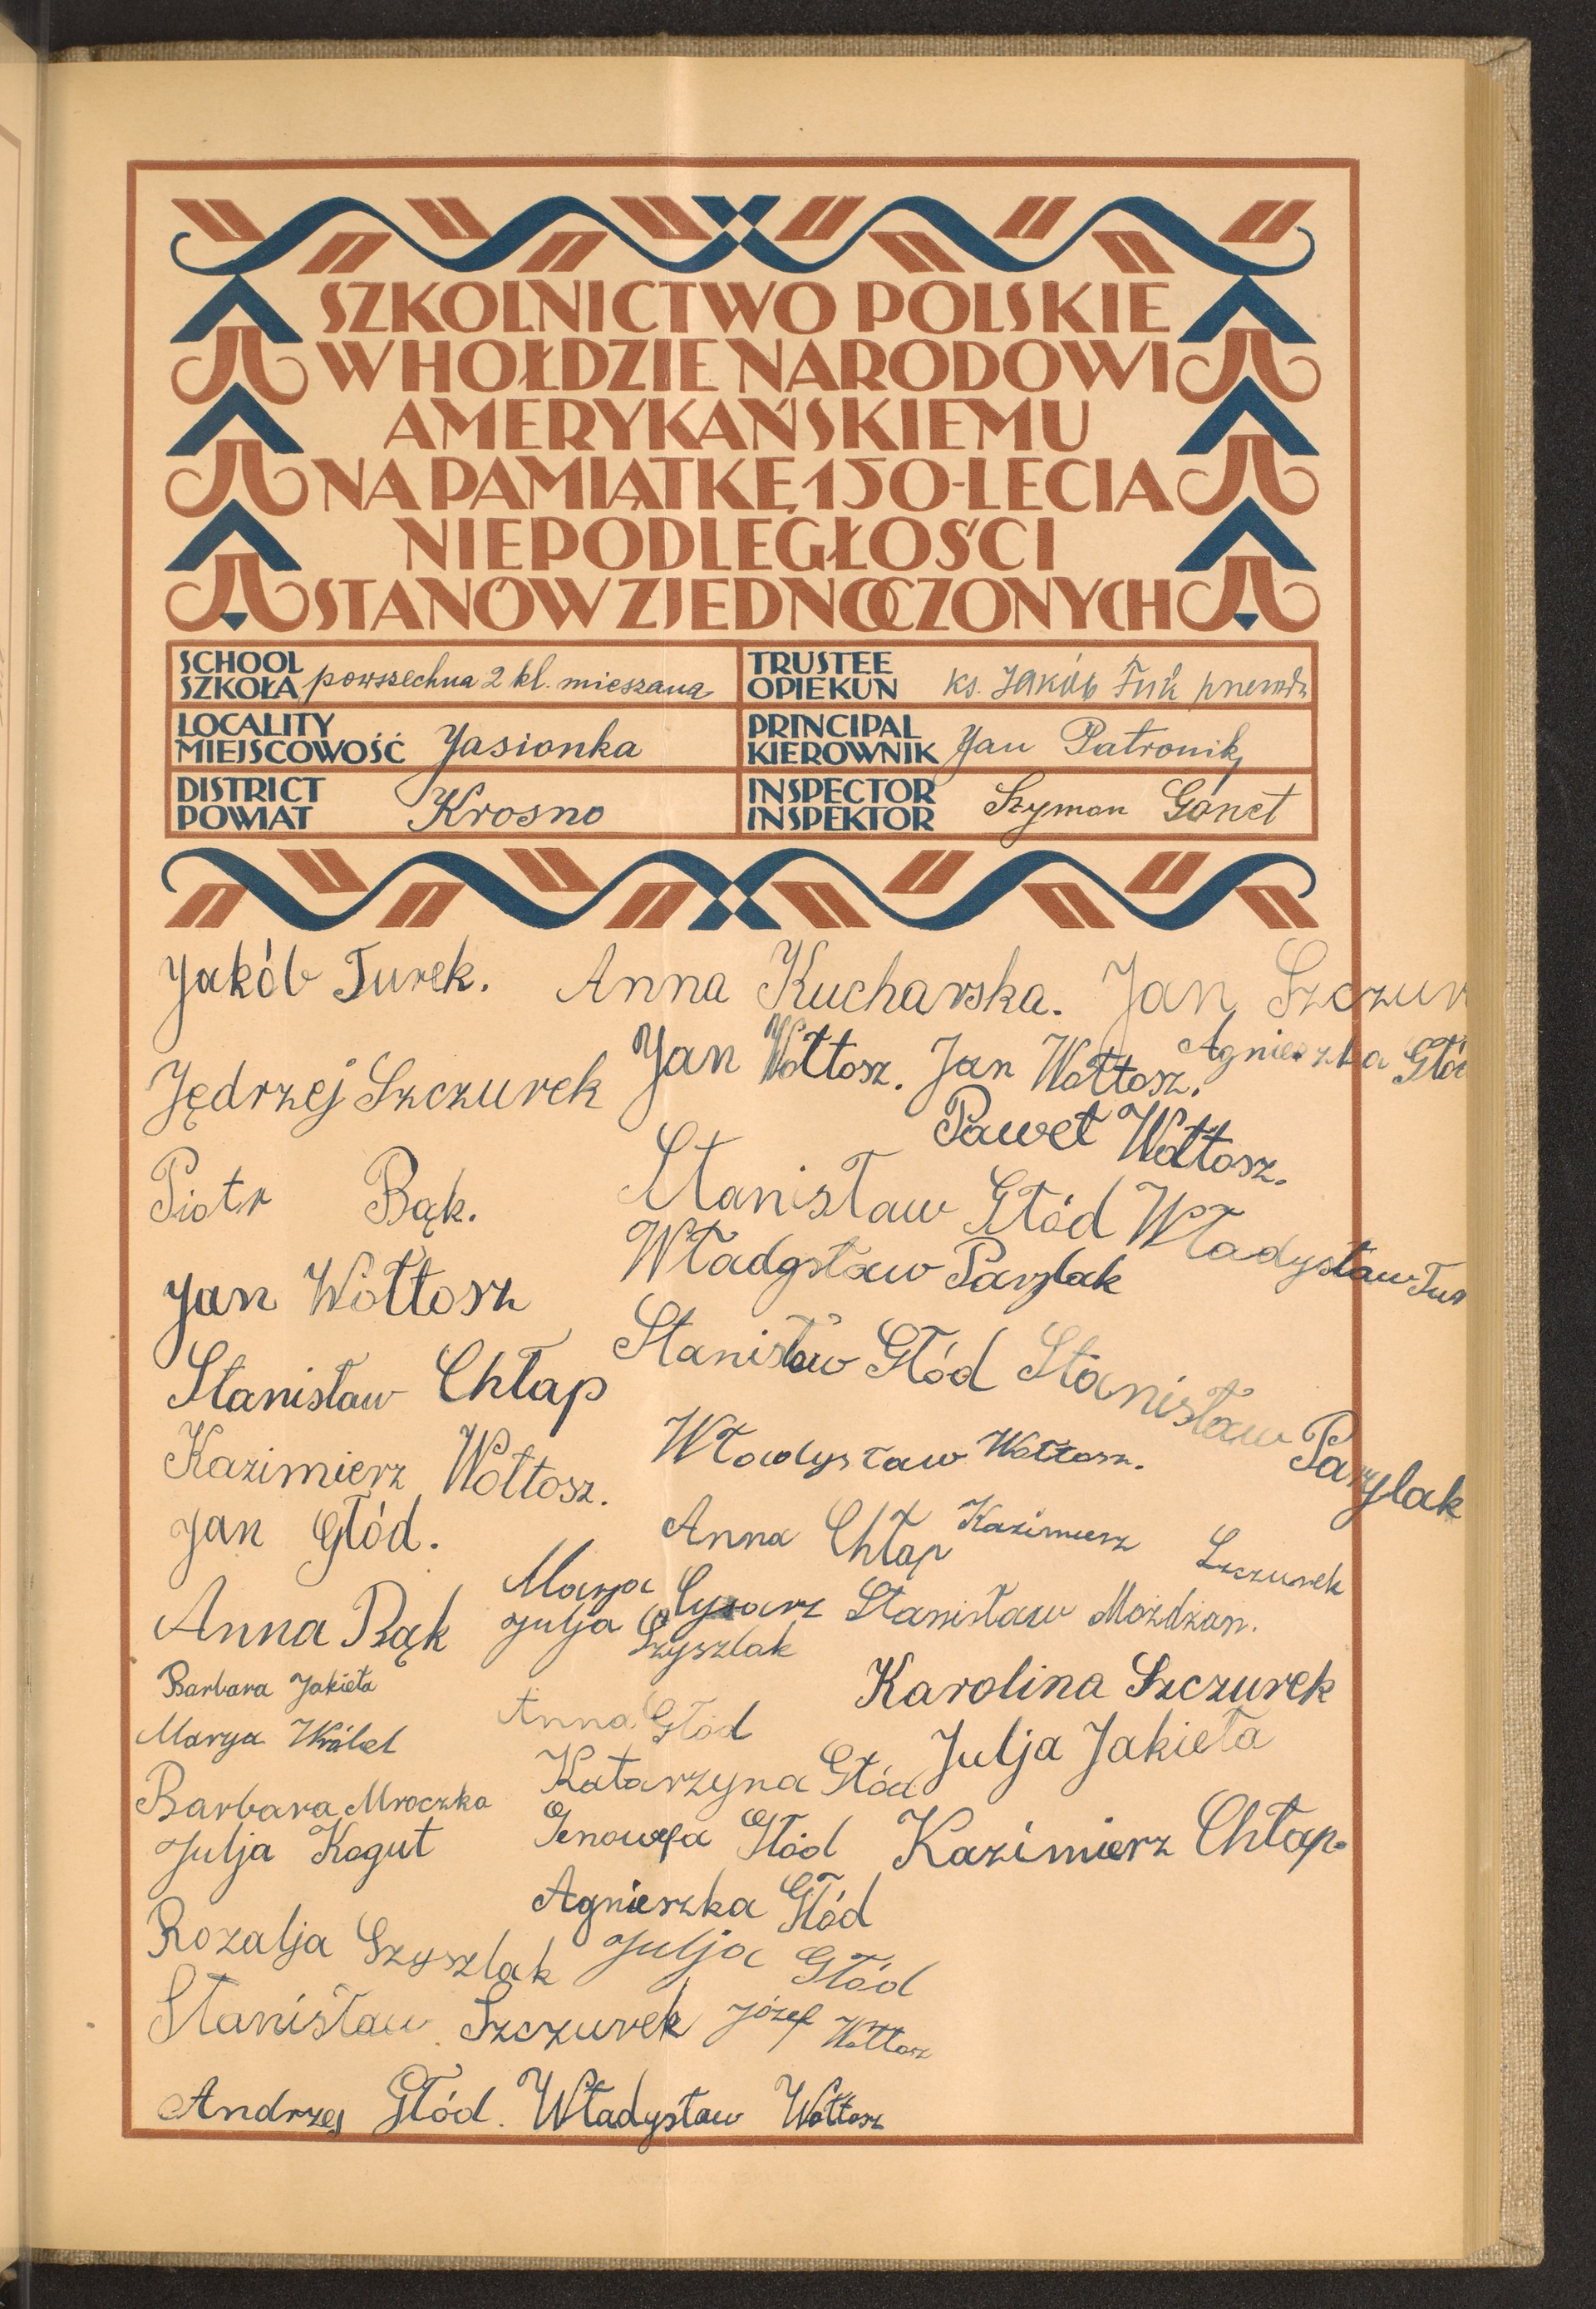 SZKOLNICTWO POLSKIE
W HOŁDZIE NARODOWI
AMERYKAŃSKIEMU
NA PAMIĄTKĘ 150-LECIA
NIEPODLEGŁOŚCI
STANÓW ZJEDNOCZONYCH
SCHOOL
SZKOŁA powszechna 2 kl. mieszana
TRUSTEE
OPIEKUN ks. Jakób
LOCALITY
MIEJSCOWOŚĆ Jasionka
PRINCIPAL
KIEROWNIK Jan Patronik
DISTRICT
POWIAT Krosno
INSPECTOR
INSPEKTOR Szymon Gonet
Jakób Turek. Anna Kucharska. Jan Szczur
Jędrzej Szczurek Jan Wołtosz. Jan Wołtosz. Agnieszka Głó
Paweł Wołtosz.
Piotr Bąk. Stanisław Głód Władysław Tur
Władysław Parylak
Jan Wołtosz
Stanisław Chłap Stanisław Głód Stanisław Parylak
Kazimierz Wołtosz. Władysław Wołtosz.
Jan Głód. Anna Chłap Kazimierz Szczurek
Anna Bąk Marja Cysarz Stanisław Możdżan.
Julja Szyszlak
Barbara Jakieła Anna Głód Karolina Szczurek
Marya Wróbel Julja Jakieła
Barbara Mroczka Katarzyna Głód
Julja Kogut Genowefa Głód Kazimierz Chłap.
Agnieszka Głód
Rozalja Szyszlak Julja Głód
Stanisław Szczurek Józef Wołtosz
Andrzej Głód. Władysław Wołtosz